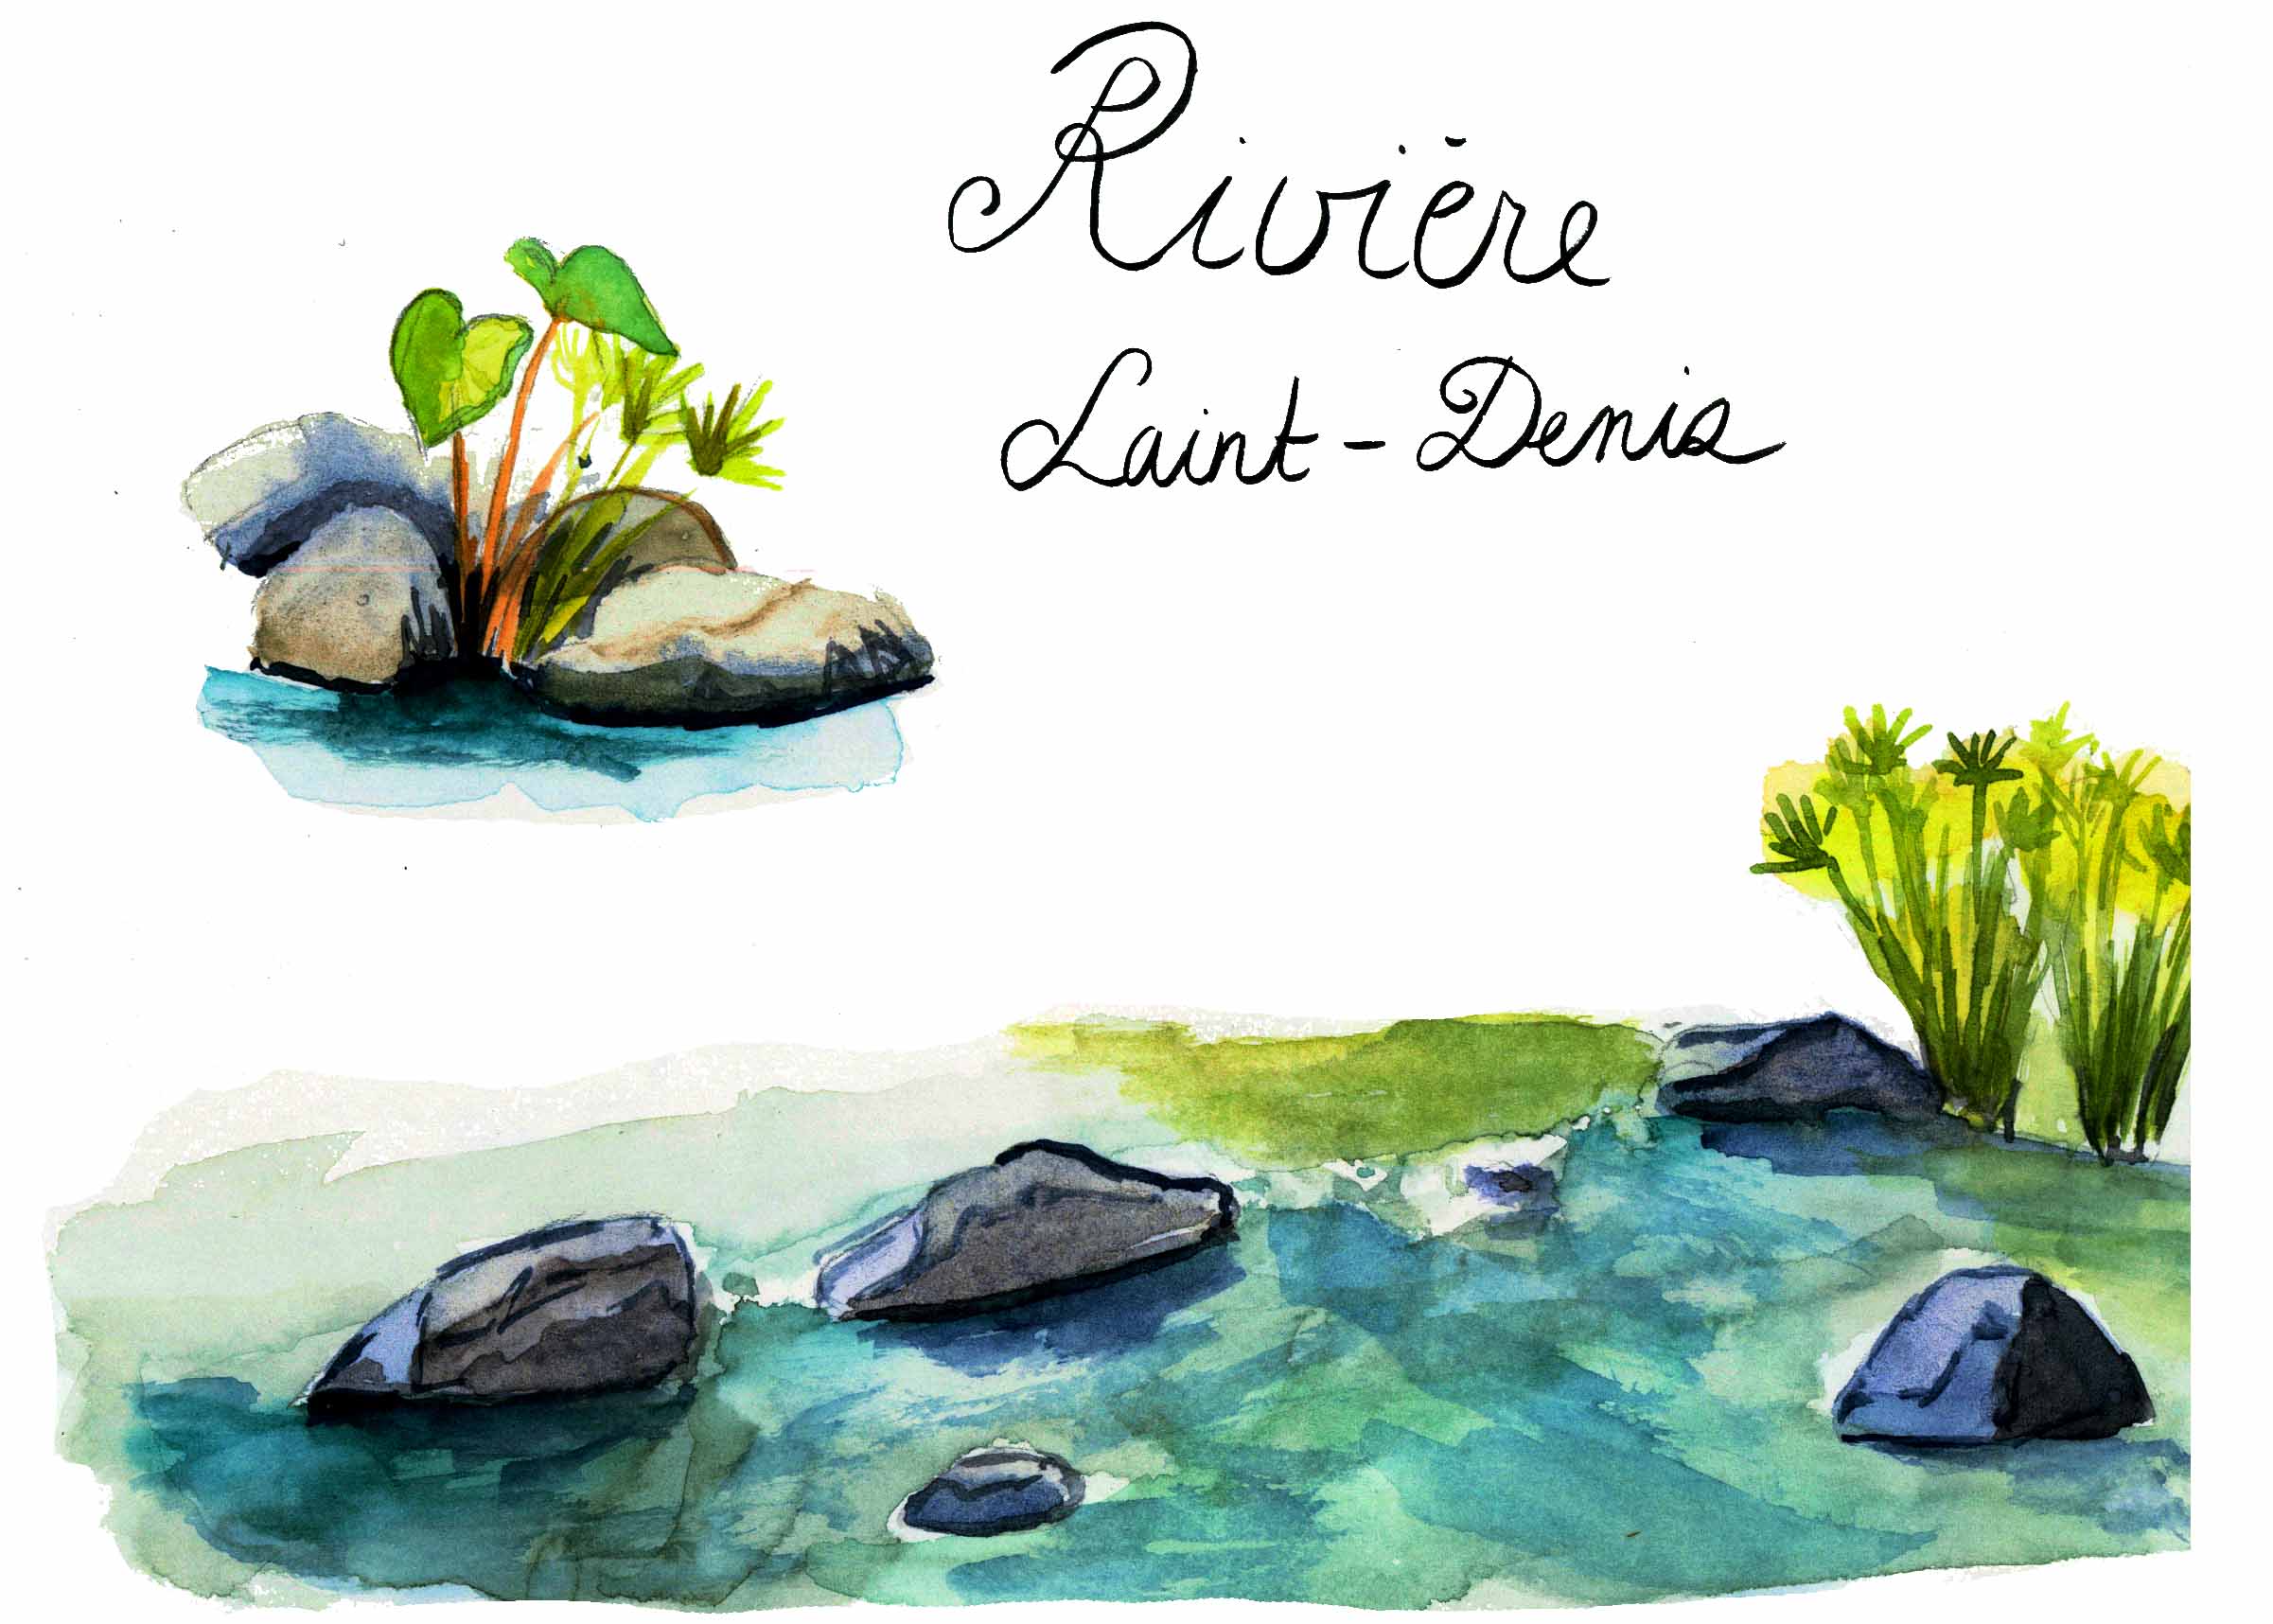 Rivière
Saint-Denis